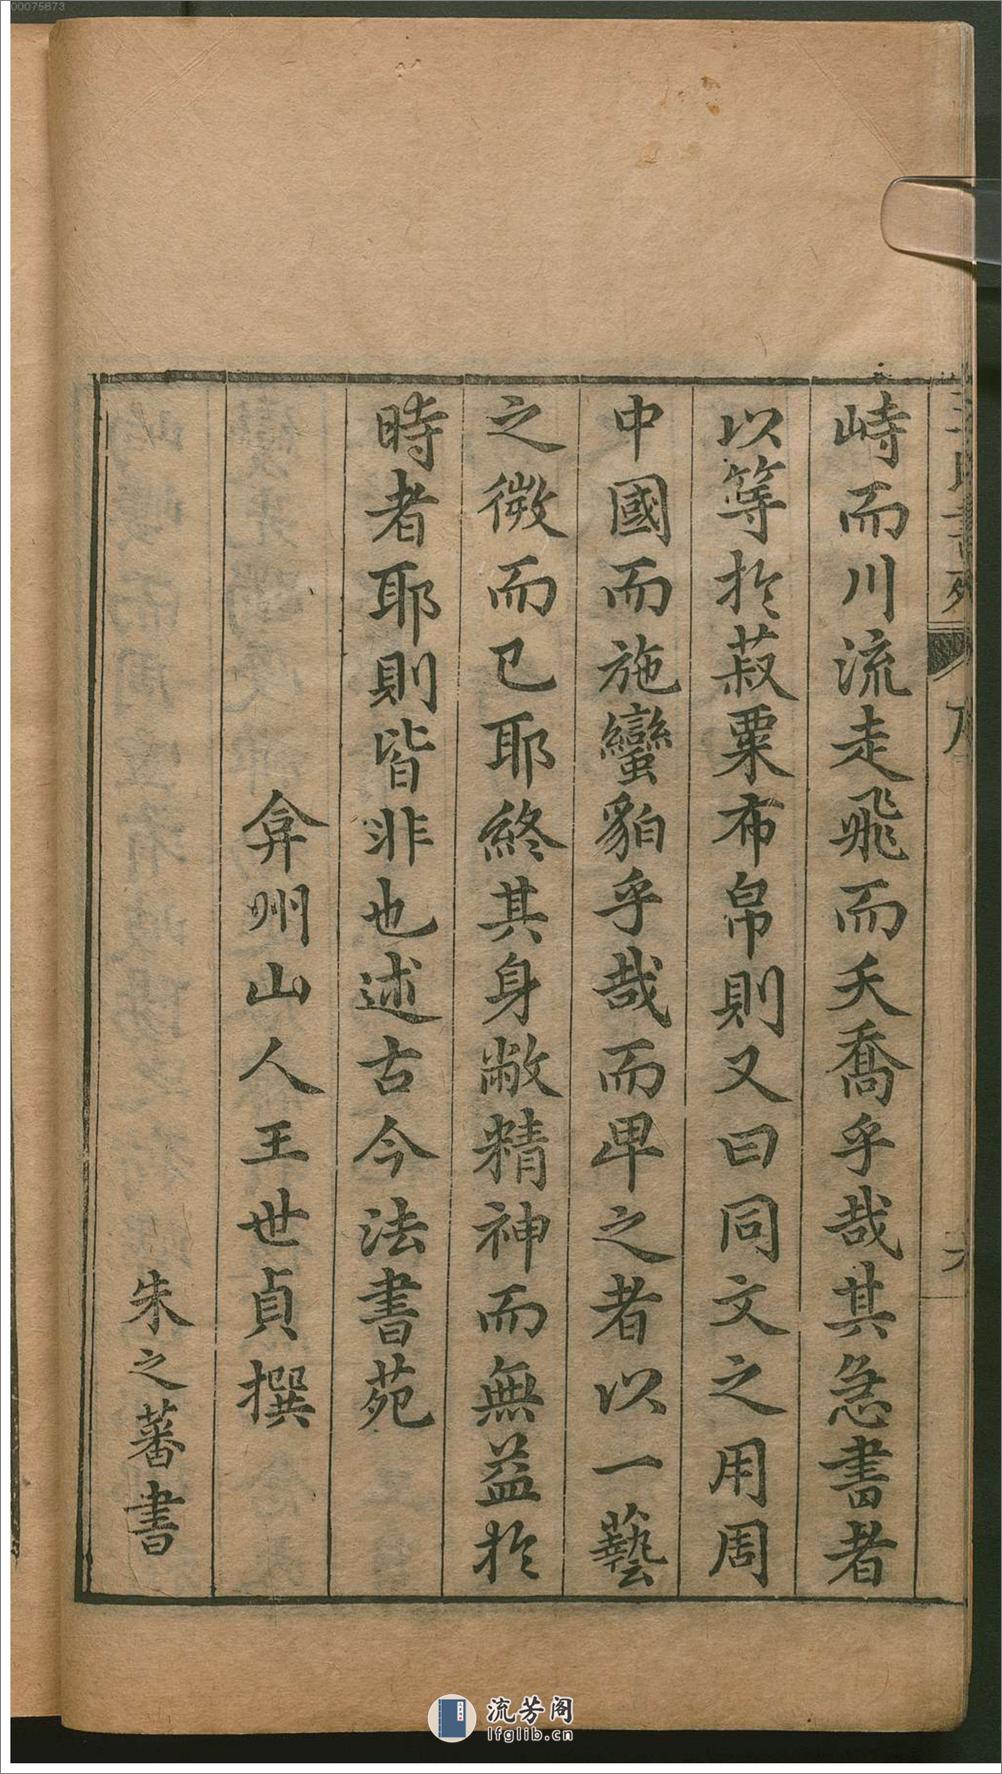 峙而川流走飛而夭喬乎哉其急書者
以等於菽粟布帛則又曰同文之用周
中國而施蠻貊乎哉而卑之者以一藝
之微而已耶終其身敝精神而無益於
時者耶則皆非也述古今法書苑
弇州山人王世貞撰
朱之蕃書
流芳阁
lfglib.cn
00075673